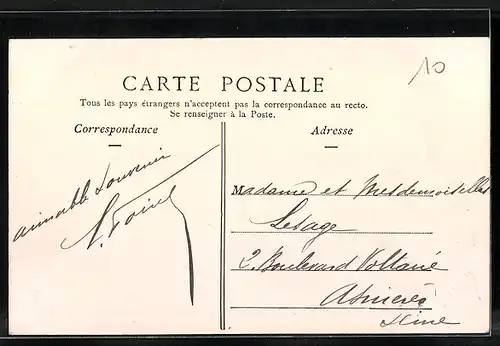 10
CARTE POSTALE
Tous les pays étrangers n'acceptent pas la correspondance au recto.
Se renseigner à la Poste.
Correspondance
Adresse
aimable Souvenir
Madame et Mesdemoiselles
Lesage
2. Boulevard Voltaire
Asnières
Seine